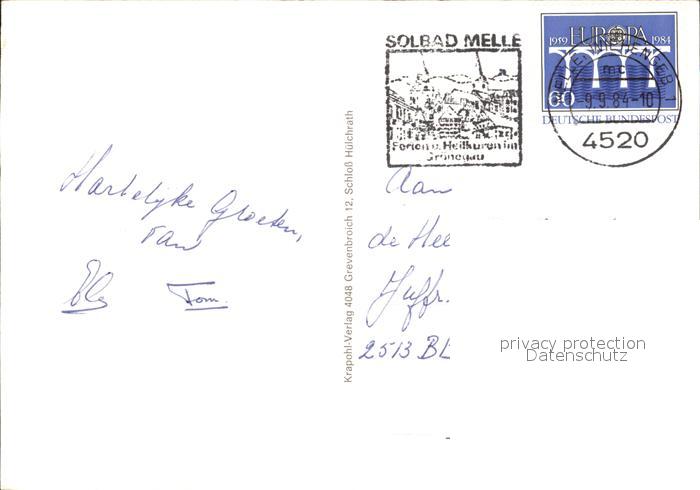 SOLBAD MELLE
Ferien u. Heilkuren im
Grönegau
1959 EUROPA 1984
60
DEUTSCHE BUNDESPOST
mc
-9.9.84-10
4520
Hartelijke Groeten,
van
Els Tom.
Krapohl-Verlag 4048 Grevenbroich 12, Schloß Hülchrath
Aan
de Hee
Juffr.
2513 BL
privacy protection
Datenschutz